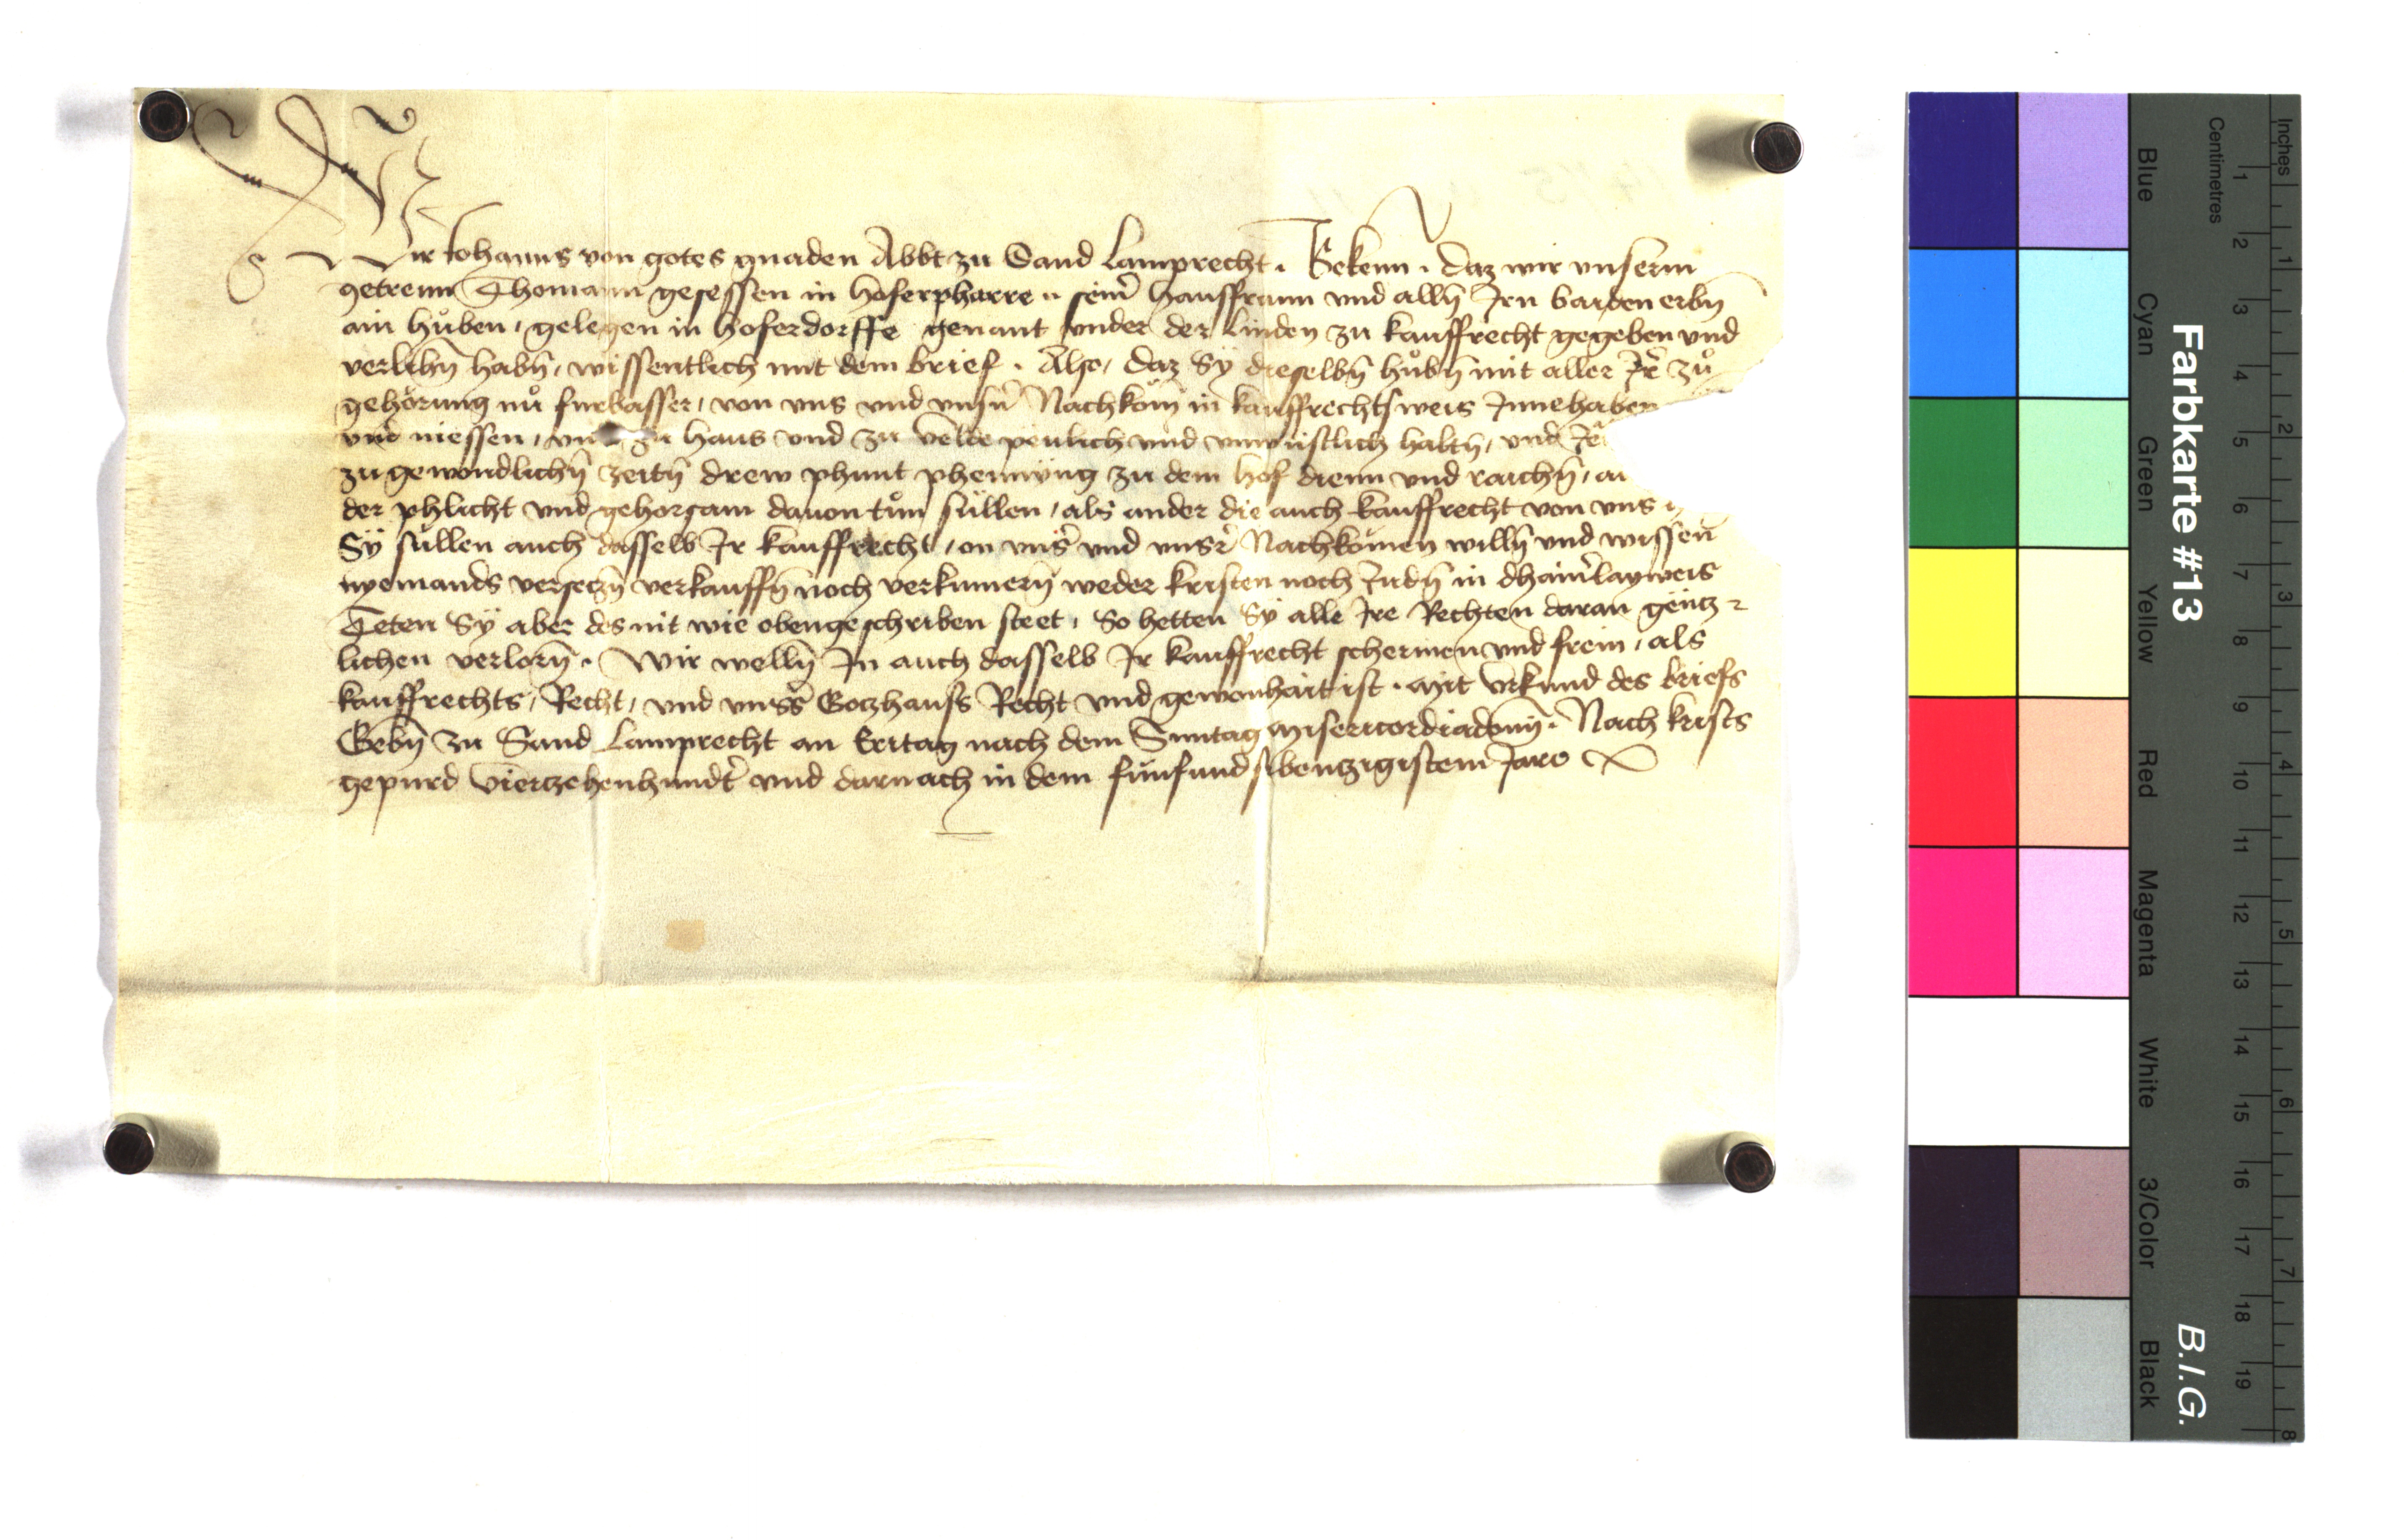 Wir Johanns von gotes gnaden Abbt zu Sand Lamprecht. Bekenn. daz wir unserm
getrewn Thomann gesessen in Hoferpharre seinr̃ hausfrawn vnd alln̄ Jrn baiden erbn̄
ain hůben, gelegen in hoferdorffe genant vnder der Linden zu kauffrecht gegeben vnd
verlihn̄ habn̄, wissentlich mit dem brief. Also, daz Sÿ dieselbn̄ hůbn̄ mit aller Jr̃ zů
gehörung nů furbasser, von vns vnd vnsn̄ Nachköm̄ in kauffrechtsweis Jnnehaben
vnd niessen, zu haus vnd zu velde peulich vnd vnwüstlich haltn̄, vnd
zu gewöndlichn̄ zeitn̄ drew phunt phenning zu dem hof dienn vnd raichn̄,
der phlicht vnd gehorsam dauon tůn süllen, als ander die auch kauffrecht von vns
Sÿ süllen auch dasselb Jr kauffrecht, on vnsr̃ vnd vnsr̃ Nachkömen willn̄ vnd wissen
nyemands versetzn̄ verkauffn̄ noch verkumern̄ weder kristen noch Judn̄ in dhainr̃layweis
Teten Sÿ aber des nit wie obengeschriben steet, So hetten Sÿ alle Jre Rechten daran gëntz
lichen verlorn̄. Wir welln̄ Jn auch dasselb Jr kauffrecht schermen vnd frein, als
kauffrechts, Recht, vnd vnsr̃s Gotzhauss Recht vnd gewonhait ist. Mit Vrkund des briefs
Gebn̄ zu Sand Lamprecht an Eritag nach dem Sunntag Misericordiadom̄. Nach krists
gepurd Viertzehenhundr̃t vnd darnach in dem fünfundsibentzigistem Jare
Farbkarte #13
B.I.G.
Inches 1 2 3 4 5 6 7 8
Centimetres 1 2 3 4 5 6 7 8 9 10 11 12 13 14 15 16 17 18 19
Blue
Cyan
Green
Yellow
Red
Magenta
White
3/Color
Black